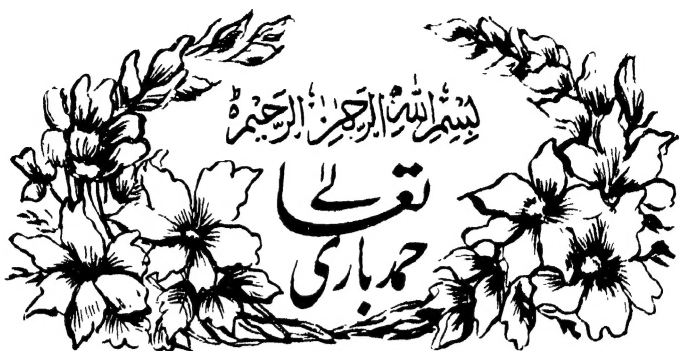 بِسْمِ اللهِ الرَّحْمٰنِ الرَّحِیْمِ
حمد باری تعالےٰ